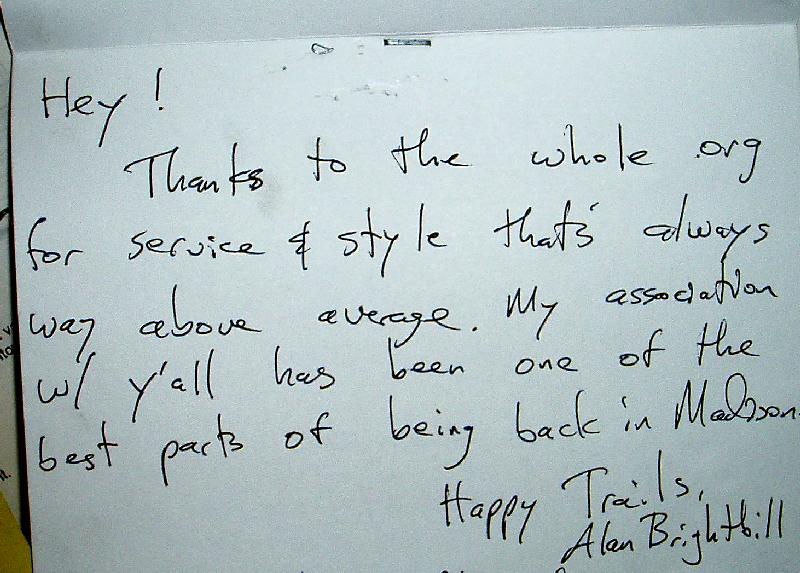 Hey!
Thanks to the whole org
for service & style that's always
way above average. My association
w/ y'all has been one of the
best parts of being back in Madison.
Happy Trails,
Alan Brightbill